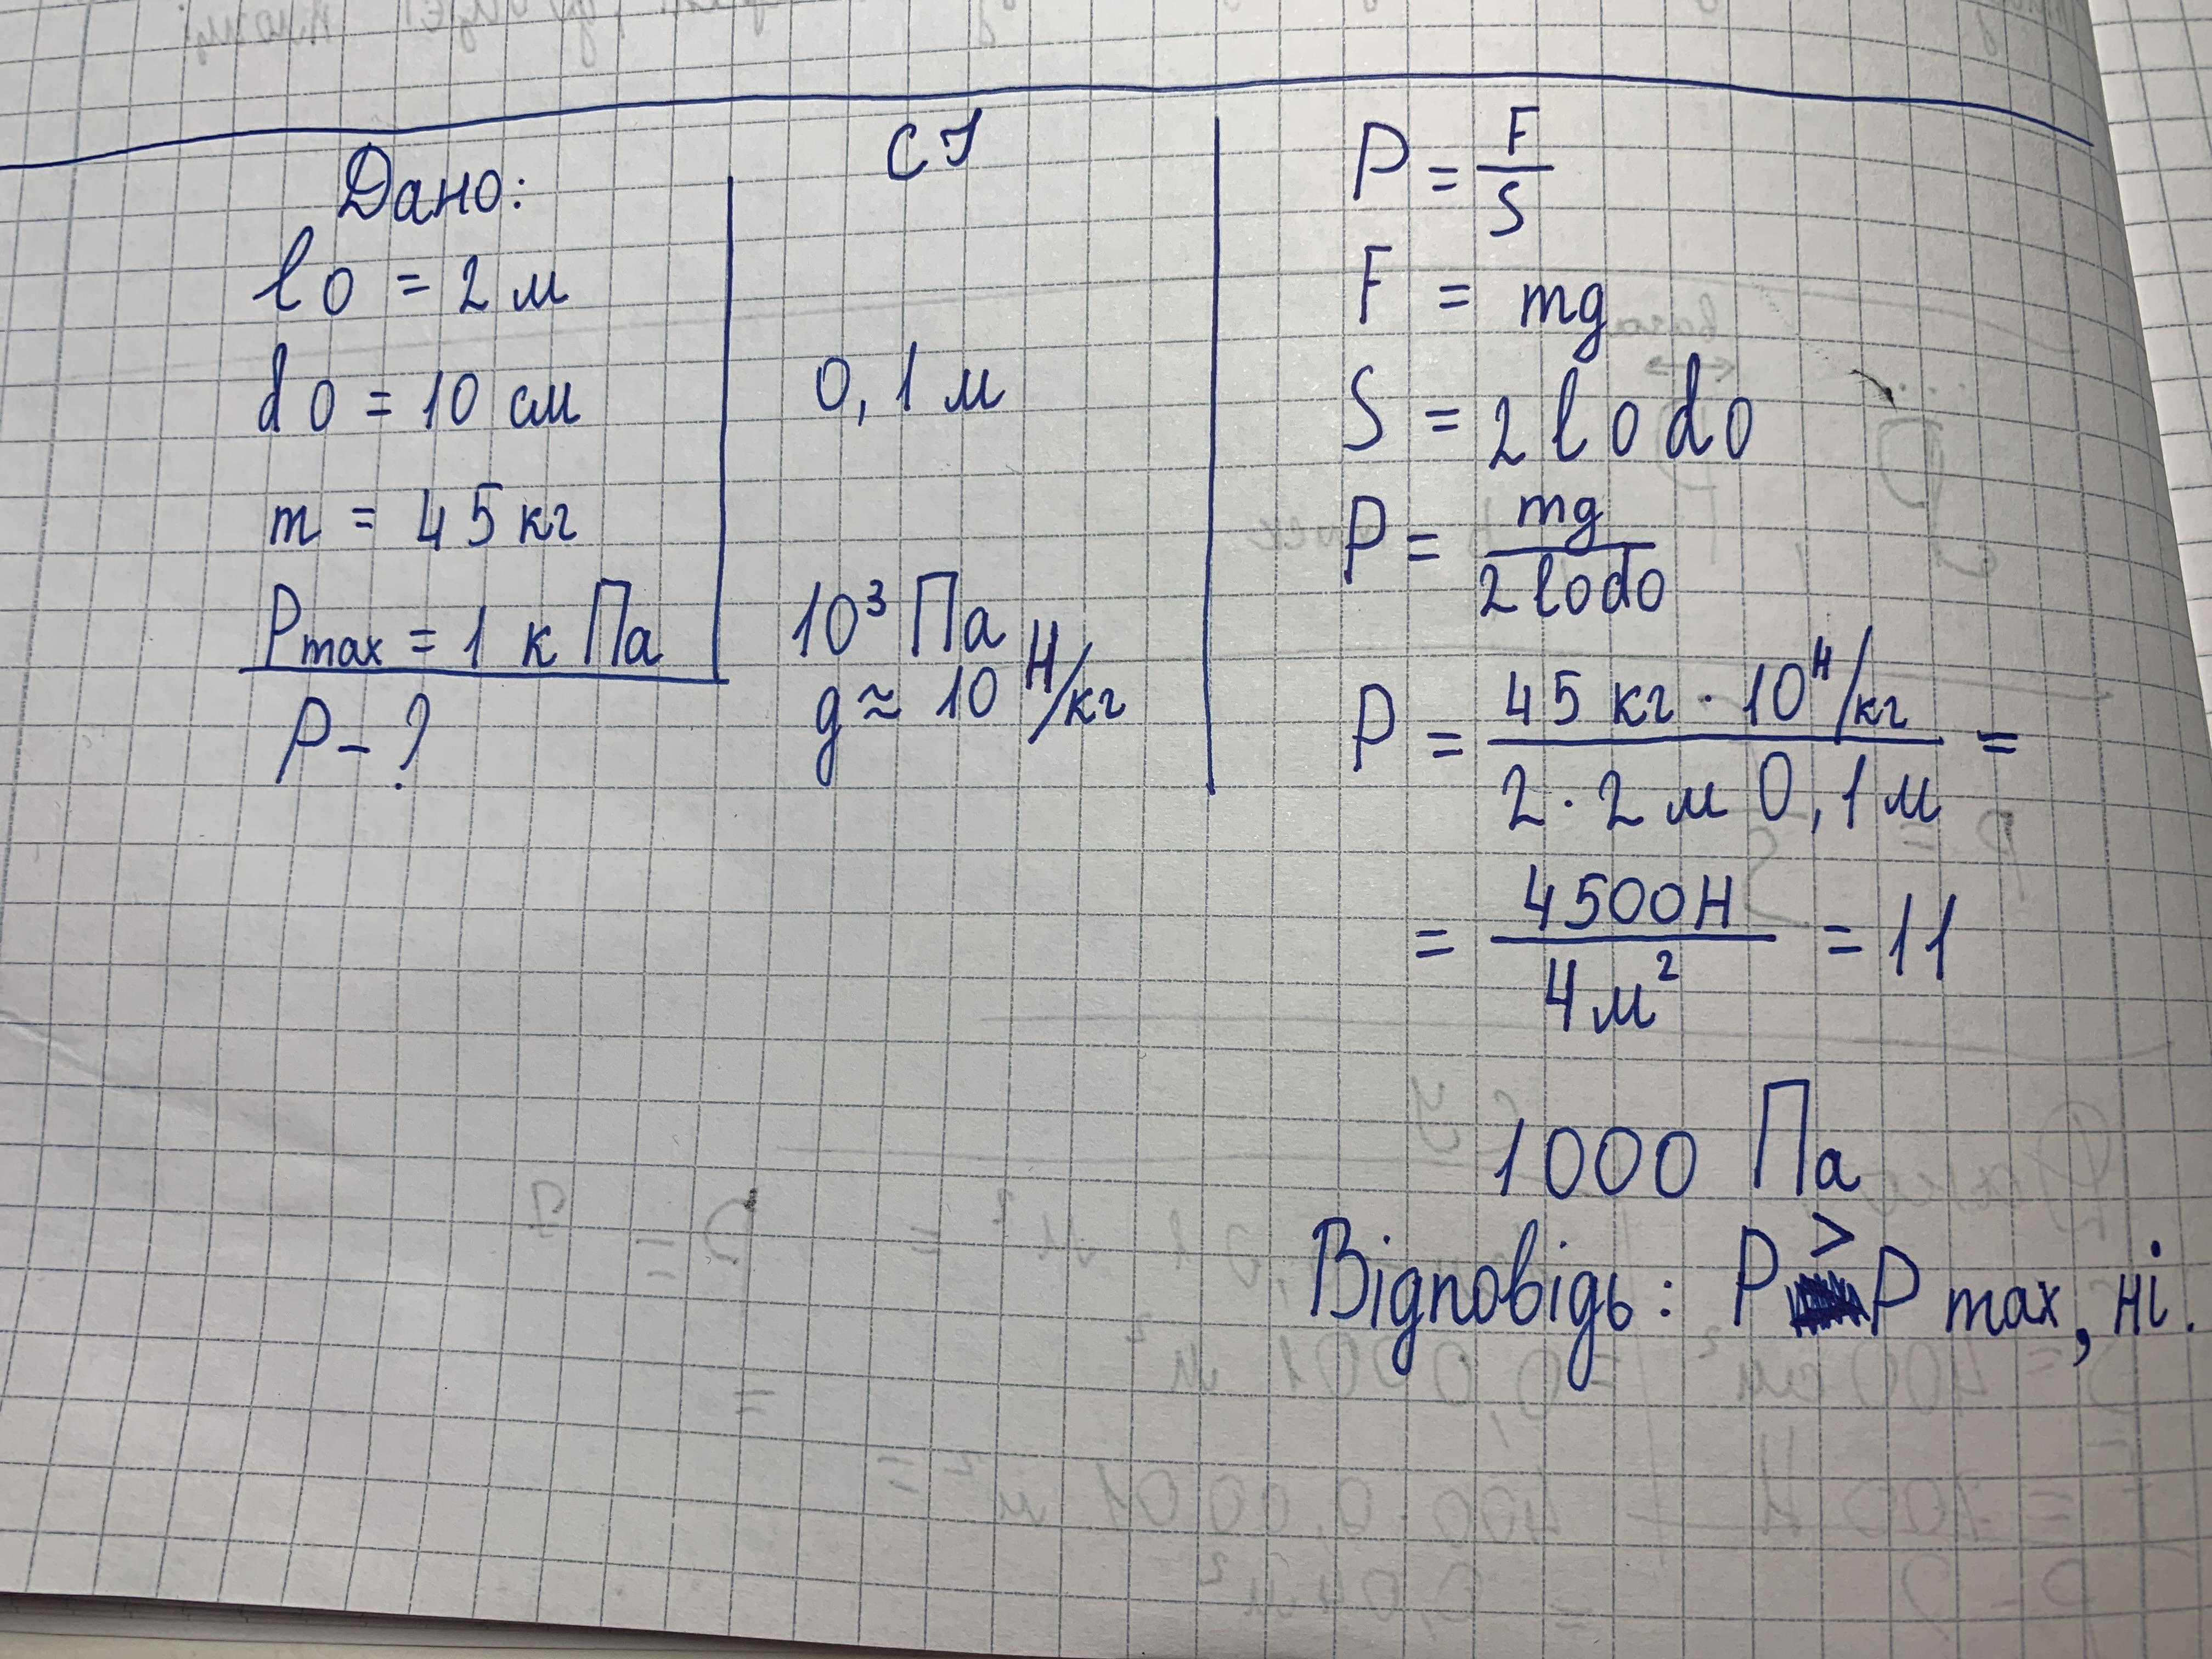 Дано:
l0 = 2 м
d0 = 10 см
m = 45 кг
Pmax = 1 кПа
P - ?
СІ
0,1 м
10³ Па
g ≈ 10 Н/кг
P = F/S
F = mg
S = 2 l0 d0
P = mg / 2l0d0
P = 45 кг · 10 Н/кг / 2 · 2 м 0,1 м =
= 4500Н / 4м² = 11
1000 Па
Відповідь: P > P max, ні.